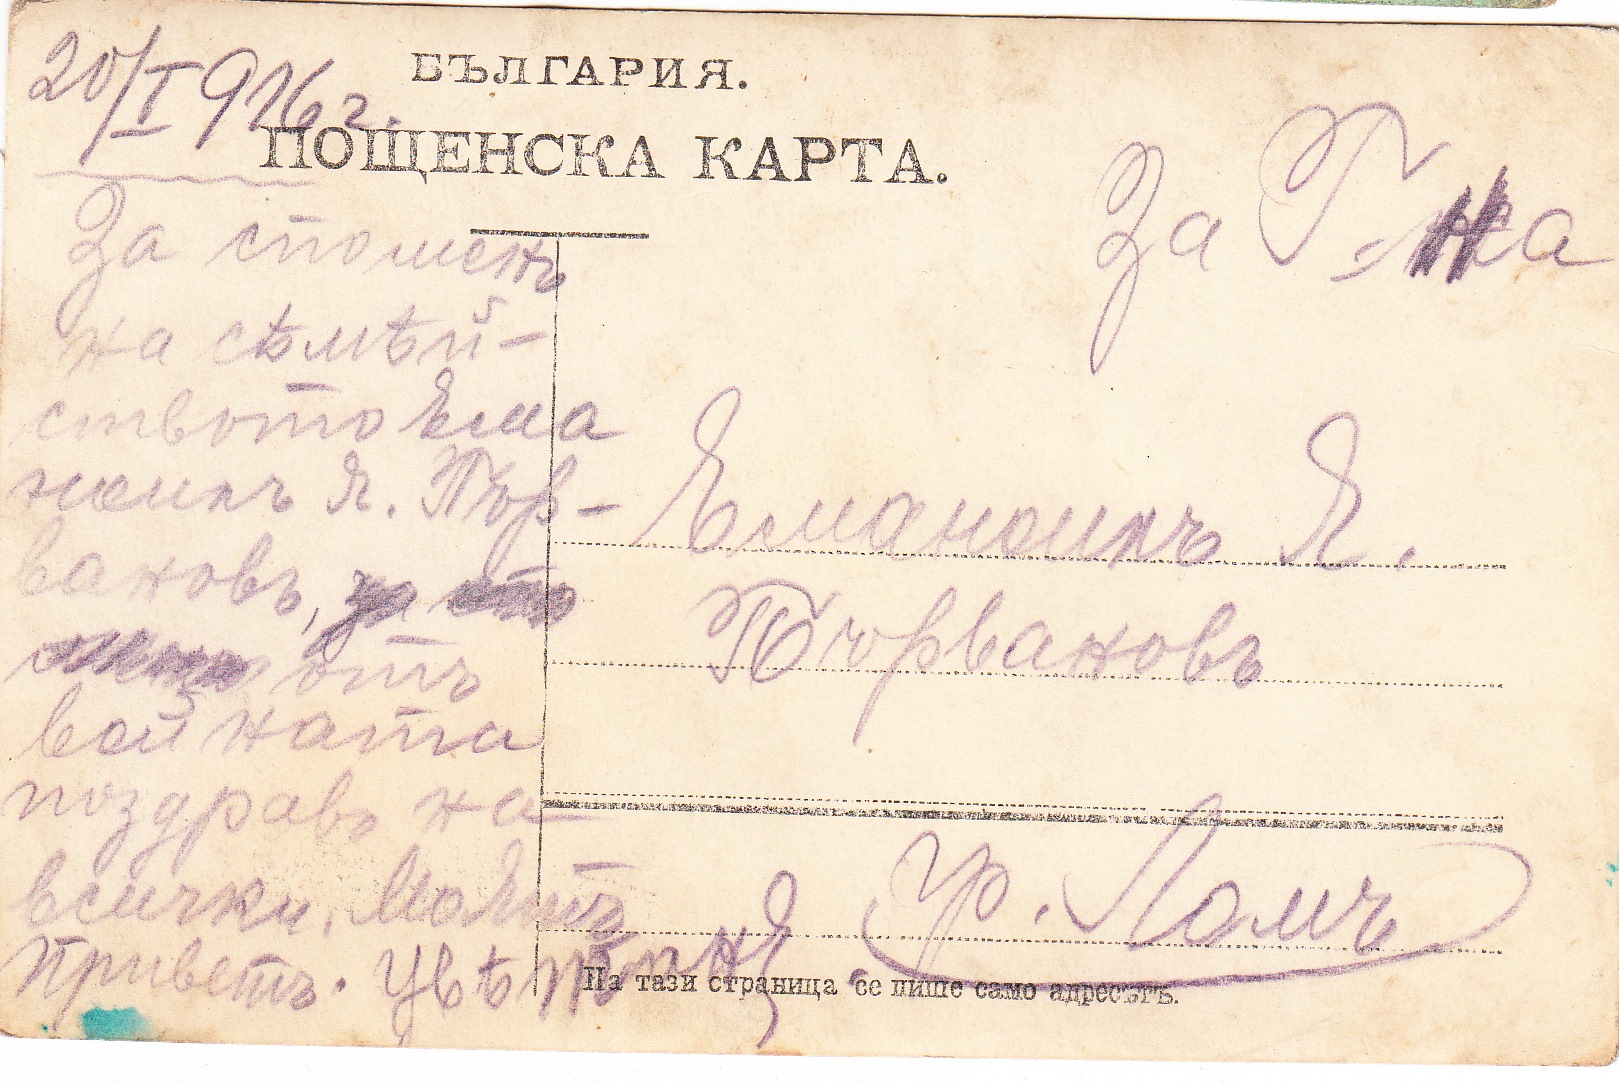 20/I 916 г.
БЪЛГАРИЯ.
ПОЩЕНСКА КАРТА.
За споменъ
на сѣмѣй-
ството Ема
ноилъ Я. Пър-
вановъ,
отъ
войната
поздравъ на
всички. Моятъ
Приветъ.
За Г-на
Еманоилъ Я.
Първановъ
гр. Ломъ
На тази страница се пише само адресътъ.